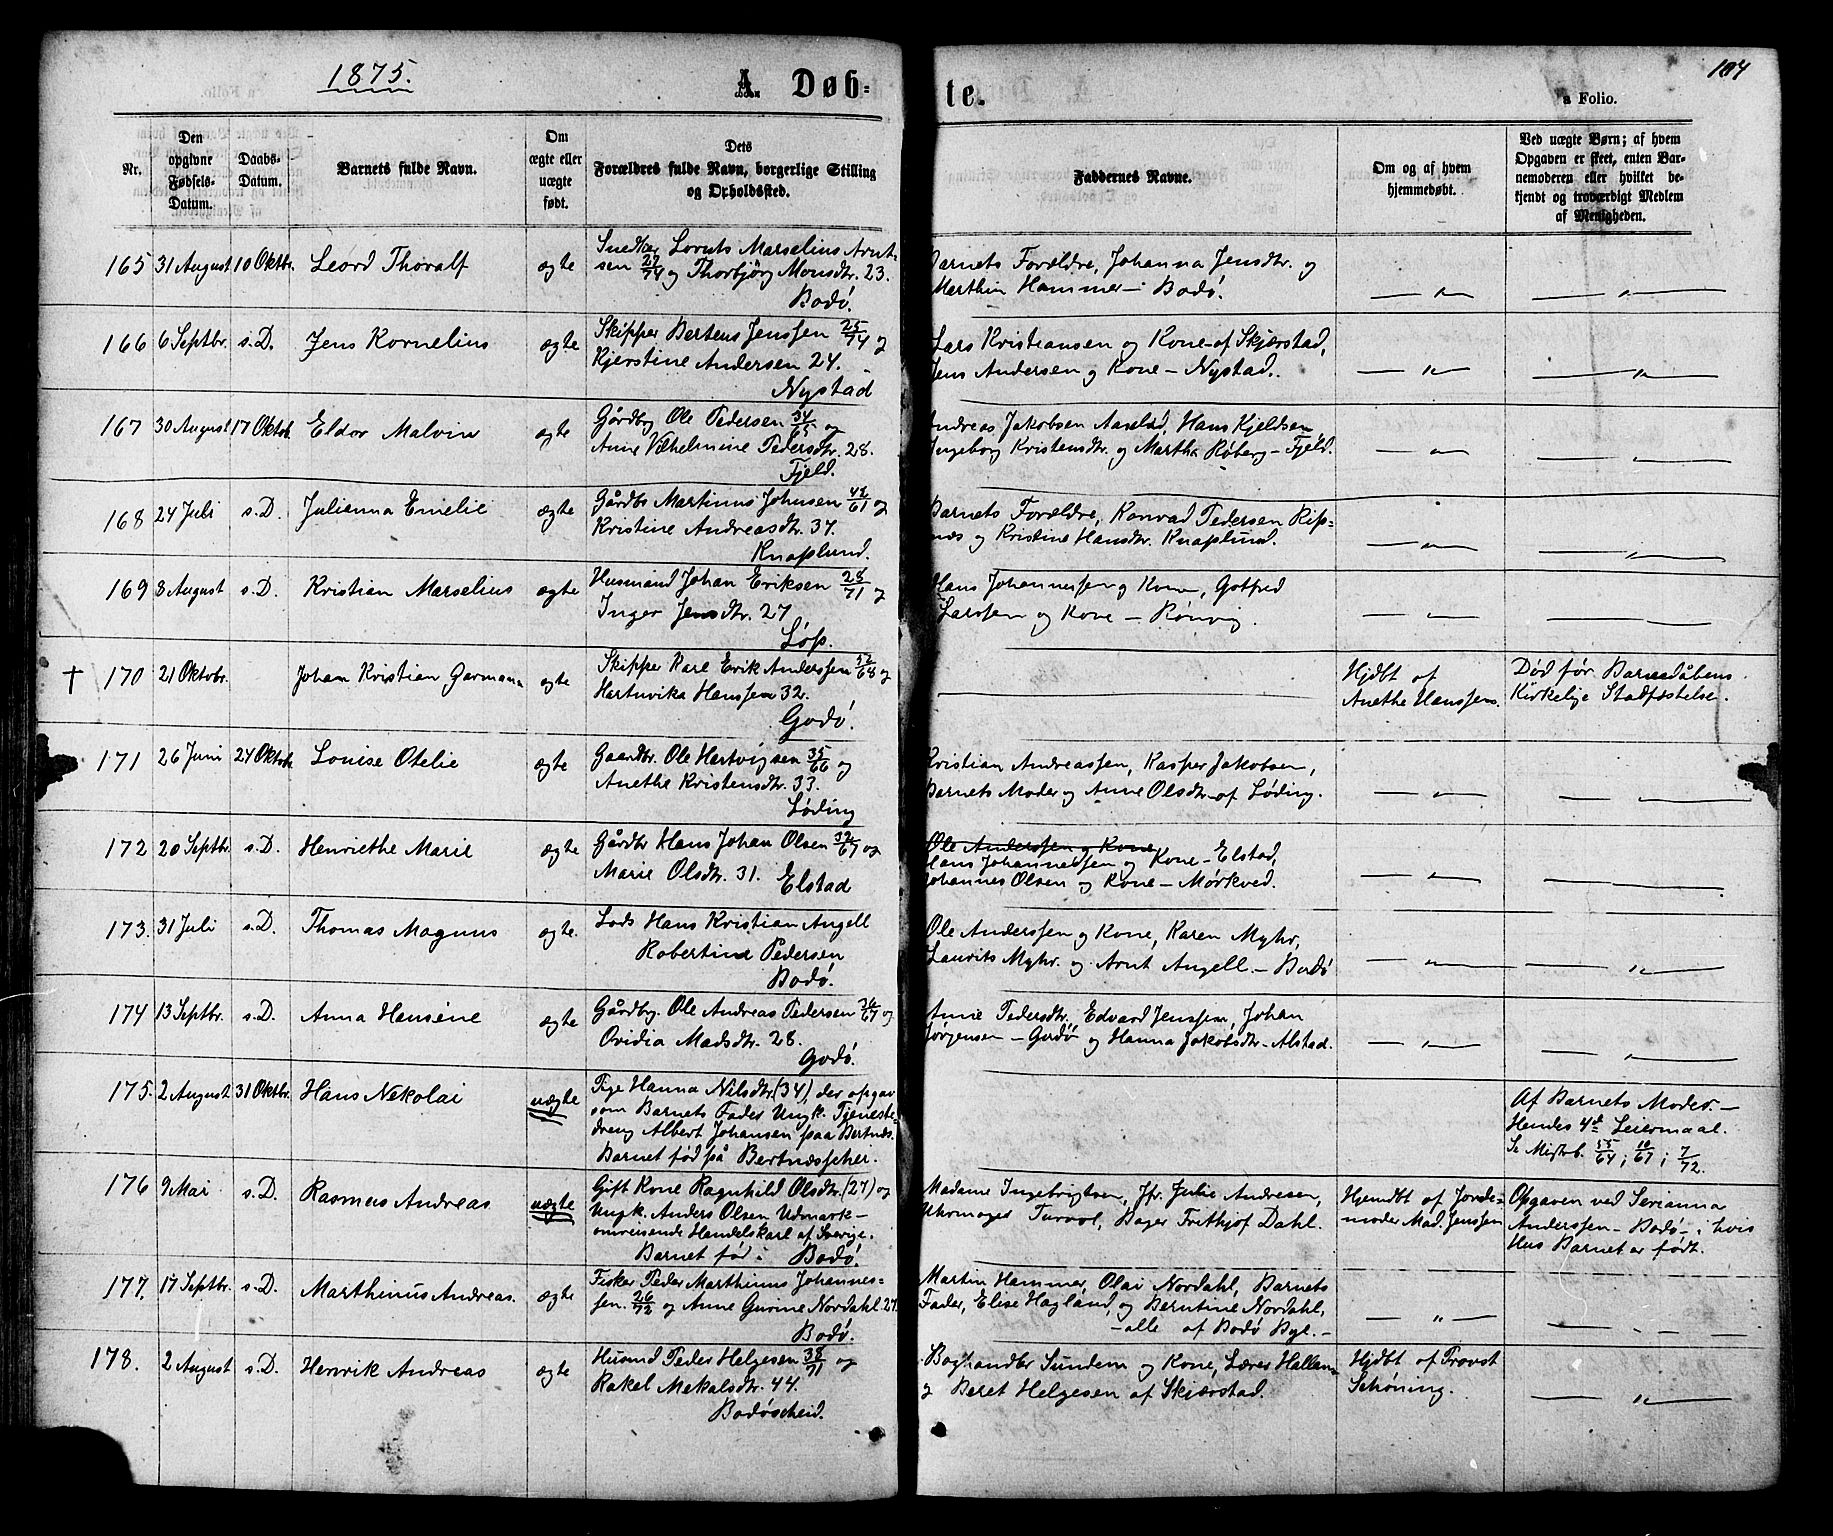 1875.
A. Døb-
te.
104
a Folio.
Nr.
Den opgivne Fødsels-Datum.
Daabs-Datum.
Barnets fulde Navn.
Om ægte eller uægte født.
Dets Forældres fulde Navn, borgerlige Stilling og Opholdssted.
Faddernes Navne.
Om og af hvem hjemmedøbt.
Ved uægte Børn; af hvem Opgaven er skeet, enten Barnemoderen eller hvilket bekjendt og troværdigt Medlem af Menigheden.
165 31 August 10 Oktbr. Leord Thoralf ægte Snedker Lorents Marselius Arnt-
sen 27/74 og Thorbjörg Monsdtr. 23.
Bodö.
Barnets Forældre, Johanna Jensdtr. og
Marthin Hammer - Bodö.
— " — — " —
166 6 Septbr. s.D. Jens Kornelius ægte Skipper Bertens Jenssen 25/74 og
Kjerstine Andersen 24.
Nystad
Lars Kristiansen og Kone - af Skjærstad,
Jens Andersen og Kone - Nystad.
— " — — " —
167 30 August 17 Oktob. Eldor Malvin ægte Gårdbr Ole Pedersen 34/55 og
Anne Vilhelmine Pedersdtr. 28.
Fjeld.
Andreas Jakobsen Aaselid, Hans Kjeldsen,
Ingeborg Kristensdtr. og Martha Röberg - Fjeld.
— " — — " —
168 24 Juli s.D. Julianna Emelie ægte Gårdbr Martinus Johnsen 42/61 og
Kristine Andreasdtr. 37.
Knaplund.
Barnets Forældre, Konrad Pedersen Rip-
næs og Kristine Hansdtr. Knaplund.
— " — — " —
169 3 August s.D. Kristian Marselius ægte Husmand Johan Eriksen 28/71 og
Inger Jensdtr. 27
Löp.
Hans Johannessen og Kone, Gotfred
Larssen og Kone - Rönvig.
— " — — " —
† 170 21 Oktobr. Johan Kristian Garmann ægte Skipper Karl Erik Anderssen 32/68 og
Hartnvika Hanssen 32.
Godö.
Hjdbt af
Anethe Hanssen.
Död för Barnedåbens
Kirkelige Stadfæstelse.
171 26 Juni 24 Oktobr. Louise Otelie ægte Gaardbr. Ole Hartvigsen 35/66 og
Anethe Kristensdtr. 33.
Löding
Kristian Andreassen, Kasper Jakobsen,
Barnets Moder og Anne Olsdtr - af Löding.
— " — — " —
172 20 Septbr. s.D. Henriethe Marie ægte Gårdbr Hans Johan Olsen 32/67 og
Marie Olsdtr. 31. Elstad
Ole Anderssen og Kone
Hans Johannessen og Kone - Elstad,
Johannes Olsen og Kone - Mörkved.
— " — — " —
173. 31 Juli s.D. Thomas Magnus ægte. Lods Hans Kristian Angell
Robertine Pedersen
Bodö.
Ole Anderssen og Kone, Karen Myhr,
Laurits Myhr. og Arnt Angell. - Bodö
— " — — " —
174 13 Septbr. s.D. Anna Hansine ægte Gårdbr. Ole Andreas Pedersen 36/67 og
Ovidia Madsdtr. 28.
Godö.
Anne Pedersdtr, Edvard Jenssen, Johan
Jörgensen - Godö og Hanna Jakobsdtr - Alstad.
— " — — " —
175. 2 August 31 Oktbr. Hans Nekolai uægte Pige Hanna Nilsdtr. (34), der opgav
som Barnets Fader Ungk. Tjeneste-
dreng Albert Johansen paa Bertnæs.
Barnet född på Bertnæs
Af Barnets Moder. -
Hendes 4de Leiermaal.
Se Mistrb. 55/64; 10/67; 7/72.
176 9 Mai s.D. Rasmus Andreas uægte Gift Kone Ragnhild Olsdtr. (27) og
Ungk. Anders Olsen Udmark -
omreisende Handelskarl af Sverige.
Barnet föd i Bodö.
Madame Ingebrigtsen, Jfr. Julie Andresen,
Uhrmager Turvol, Bager Frithjof Dahl.
Hjemdbt af Jorde-
moder Mad. Jenssen
Opgaven ved Serianna
Anderssen - Bodö - i hvis
Hus Barnet er födt.
177. 17 Septbr. s.D. Marthinus Andreas. ægte Fisker Peder Marthinus Johannes-
sen. 26/72 og Anne Gurine Nordahl 27.
Bodö.
Martin Hammer, Olai Nordahl, Barnets
Fader, Elise Hagland, og Berntine Nordahl,
- alle af Bodö Bye. -
— " —
178. 2 August s.D. Henrik Andreas ægte Husmd Peder Helgesen 38/71 og
Rakel Mekalsdtr. 44.
Bodöscheid.
Boghandler Sundem og Kone, Lærer Halland
og Beret Helgesen af Skjærstad.
Hjdbt af Provst
Schöning.
— " —